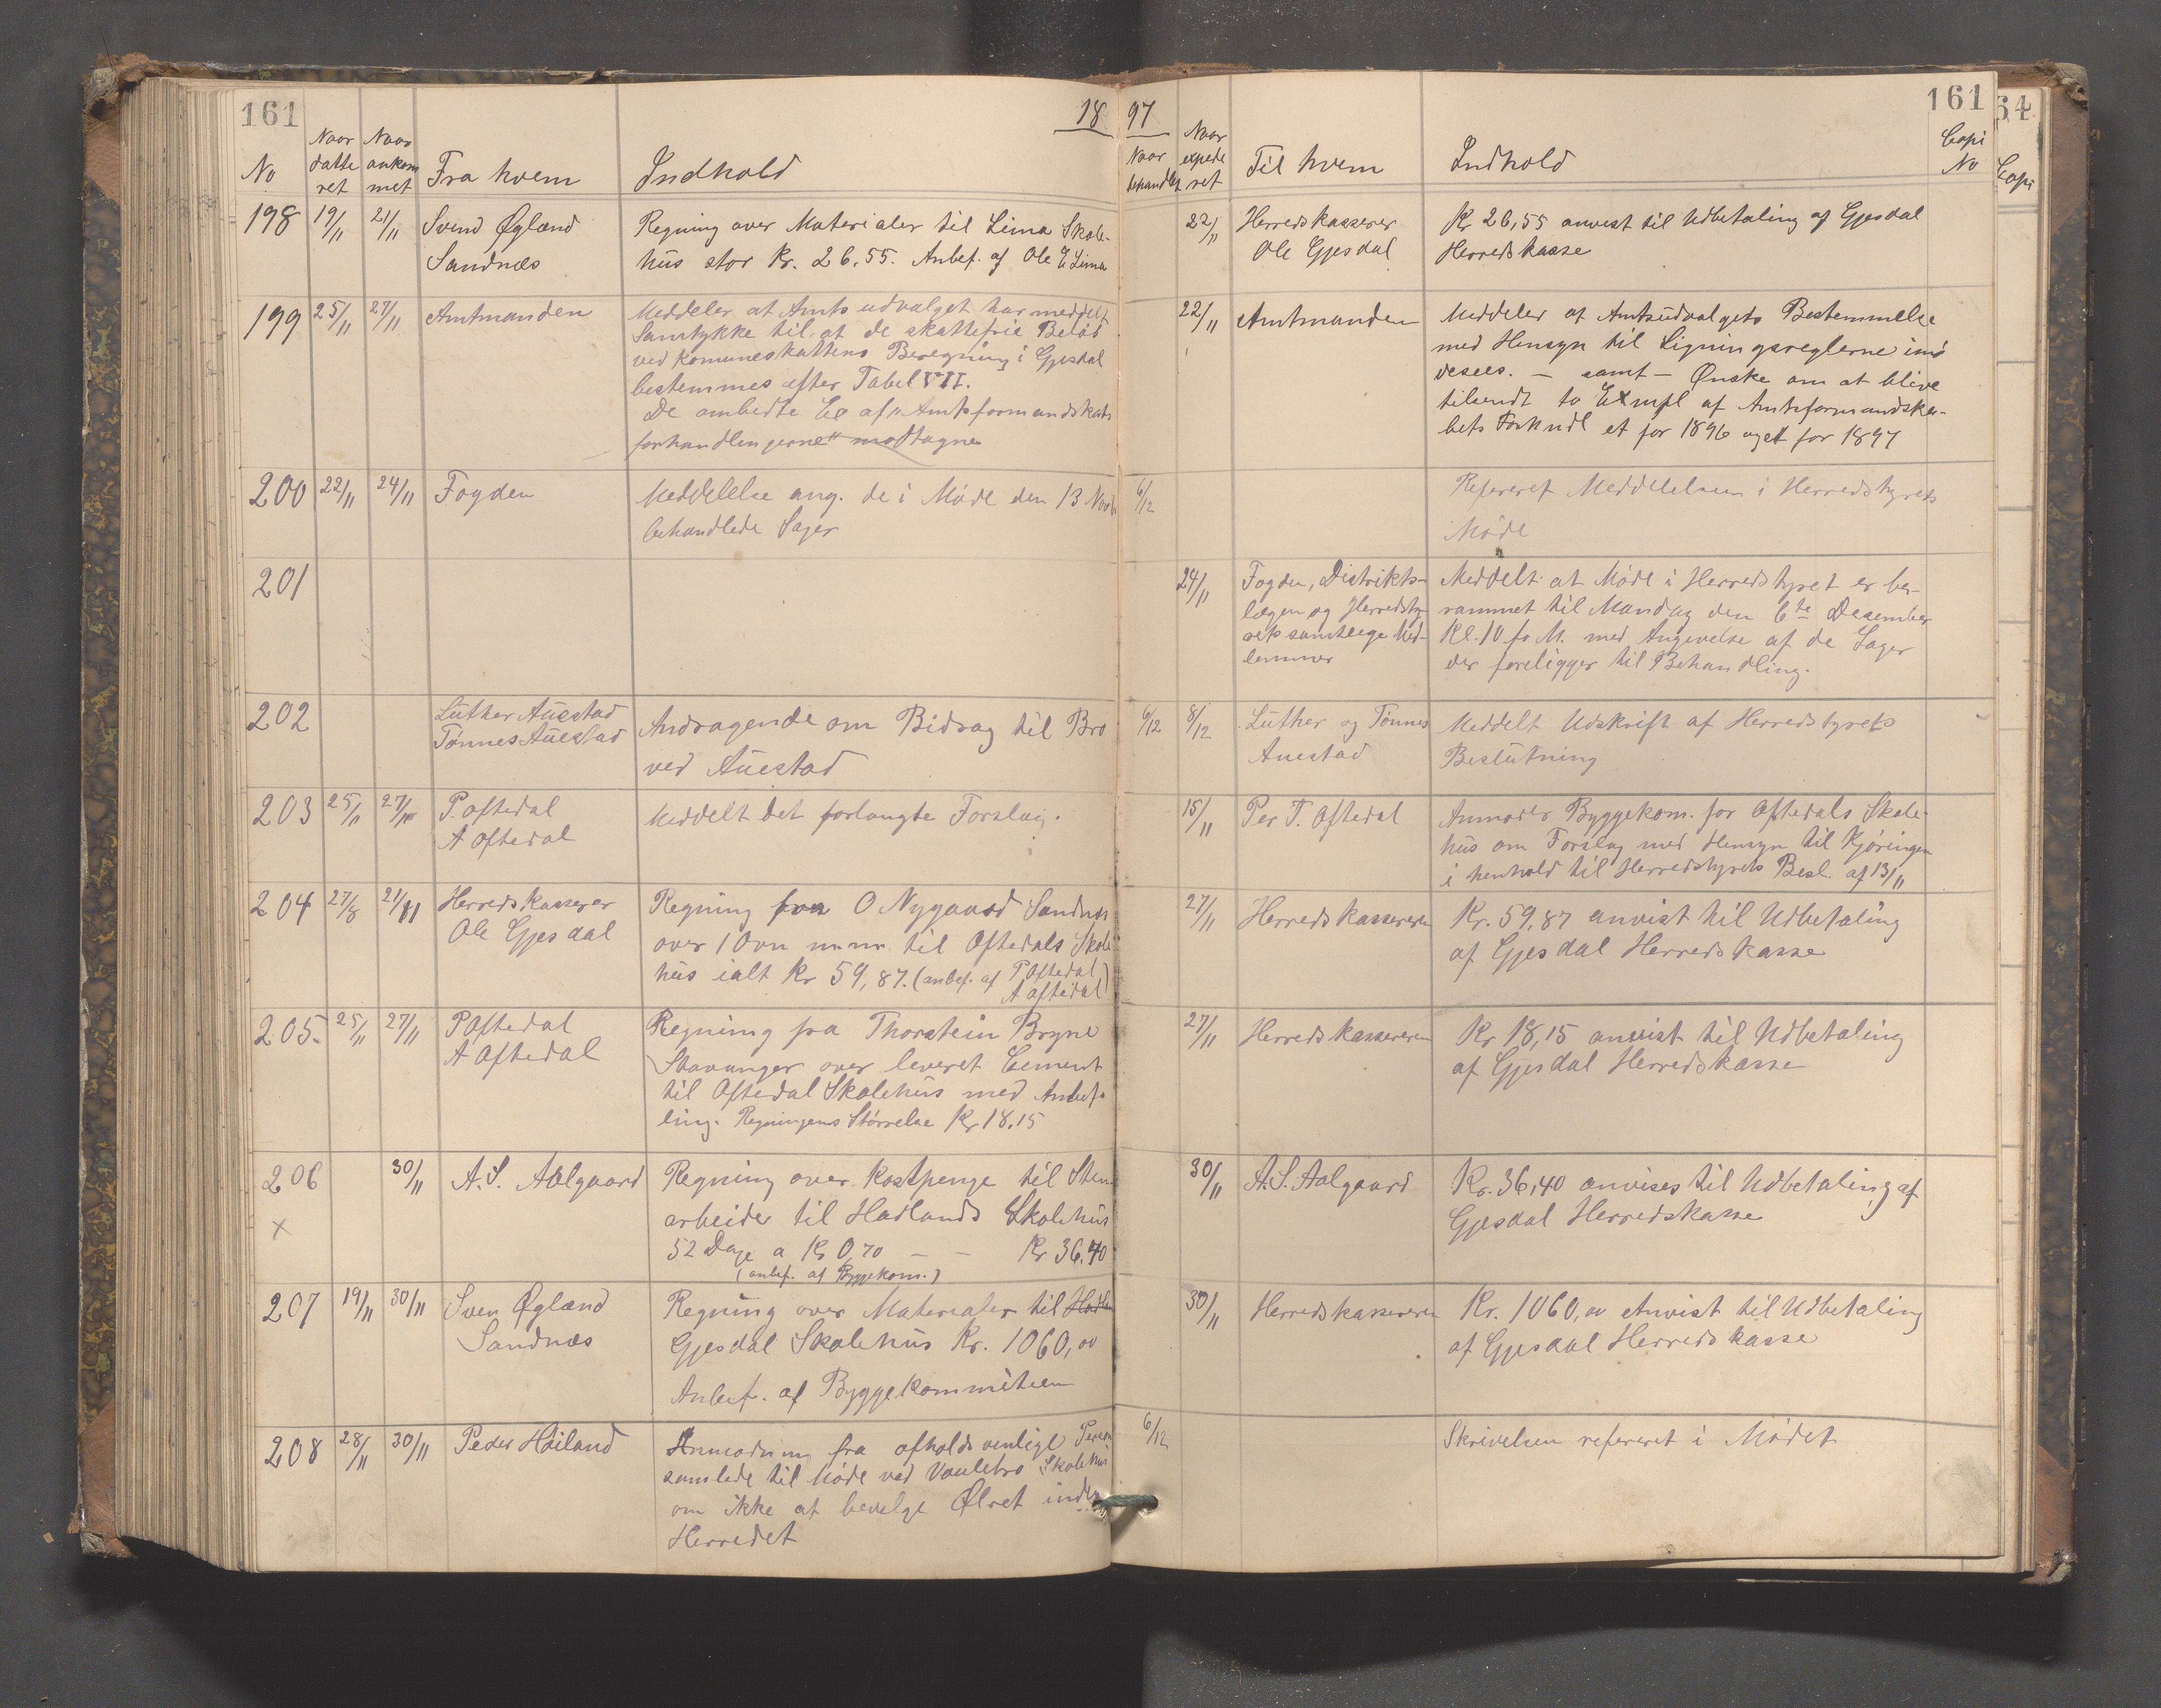 161
18
No
Naar datteret
Naar ankommet
Fra hvem
Indhold
198 19/11 21/11 Svend Øgland Regning over Materialer til Lima Skole-
Sandnæs hus stor Kr. 26,55. Anbef. af Ole E Lima
199 25/11 27/11 Amtmanden Meddeler at Amtsudvalget har meddelt
Samtykke til at de skattefrie Beløb
ved komuneskattens Beregning i Gjesdal
bestemmes efter Tabel VII.
De ombedte Ex af "Amtsformandskabs
forhandlingerne" modtagne
200 22/11 24/11 Fogden Meddelelse ang. de i Møde den 13 Novb
behandlede Sager
201
202 Luther Auestad Andragende om Bidrag til Bro
Tønnes Auestad ved Auestad
203 25/11 27/11 P. Oftedal Meddelt det forlangte Forslag.
A Oftedal
204 27/8 21/11 Herredskasserer Regning fra O Nygaard Sandnæs
Ole Gjesdal over 1 Ovn m.m. til Oftedals Skole
hus ialt Kr 59,87. (anbef. af P Oftedal
A Oftedal)
205. 25/11 27/11 P Oftedal Regning fra Thorstein Bryne
A Oftedal Stavanger over leveret Cement
til Oftedal Skolehus med Anbef-
ling. Regningens Størrelse Kr 18,15
206 30/11 A. S. Aalgaard Regning over Kostpenge til Sten
arbeider til Hadlands Skolehus
x 52 Dage a Kr 0,70 — — Kr 36,40
(anbef. af Byggekom.)
207 19/11 30/11 Sven Øgland Regning over Materialer til Hadlan
Sandnæs Gjesdal Skolehus Kr. 1060,00
Anbef. af Byggekommiteen
208 28/11 30/11 Peder Høiland Anmodning fra afholdsvenlige Person
samlede til Møde ved Vaulebro Skolehus
om ikke at bevilge Ølret inden
Herredet
97
161
Naar behandlet
Naar expederet
Til hvem
Indhold
Copi No
22/11 Herredskasserer Kr 26,55 anvist til Udbetaling af Gjesdal
Ole Gjesdal Herredskasse
22/11 Amtmanden Meddeler at Amtsudvalgets Bestemmelse
med Hensyn til Ligningsreglerne imø
desees. — samt — Ønske om at blive
tilsendt to Exmpl af Amtsformandska-
bets Forhndl et for 1896 og et for 1897
6/12 Refereret Meddelelsen i Herredstyrets
Møde
24/11 Fogden, Distrikts- Meddelt at Møde i Herredstyret er be-
lægen og Herredsty- rammet til Mandag den 6te Desember
rets samtlige Med- Kl. 10 fo M. med Angivelse af de Sager
lemmer der foreligger til Behandling.
6/12 8/12 Luther og Tønnes Meddelt Udskrift af Herredstyrets
Auestad Beslutning
15/11 Per T. Oftedal Anmoder Byggekom. for Oftedals Skole-
hus om Forslag med Hensyn til Kjøringen
i henhold til Herredstyrets Besl. af 13/11
27/11 Herredskassereren Kr. 59,87 anvist til Udbetaling
af Gjesdal Herredskasse
27/11 Herredskassereren Kr 18,15 anvist til Udbetaling
af Gjesdal Herredskasse
30/11 A. S. Aalgaard Kr. 36,40 anvises til Udbetaling af
Gjesdal Herredskasse
30/11 Herredskassereren Kr. 1060,00 Anvist til Udbetaling
af Gjesdal Herredskasse
6/12 Skrivelsen refereret i Mødet
64
Copi